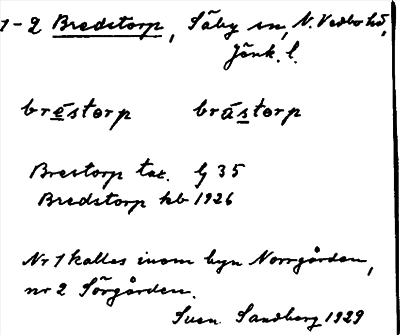 1-2 Bredstorp, Säby sn, N. Vedbo hd,
Jönk. l.
bréstorp brástorp
Brestorp tax. G 35
Bredstorp kb 1926
Nr 1 kallas inom byn Norrgården,
nr 2 Sörgården.
Sven Sandberg 1929